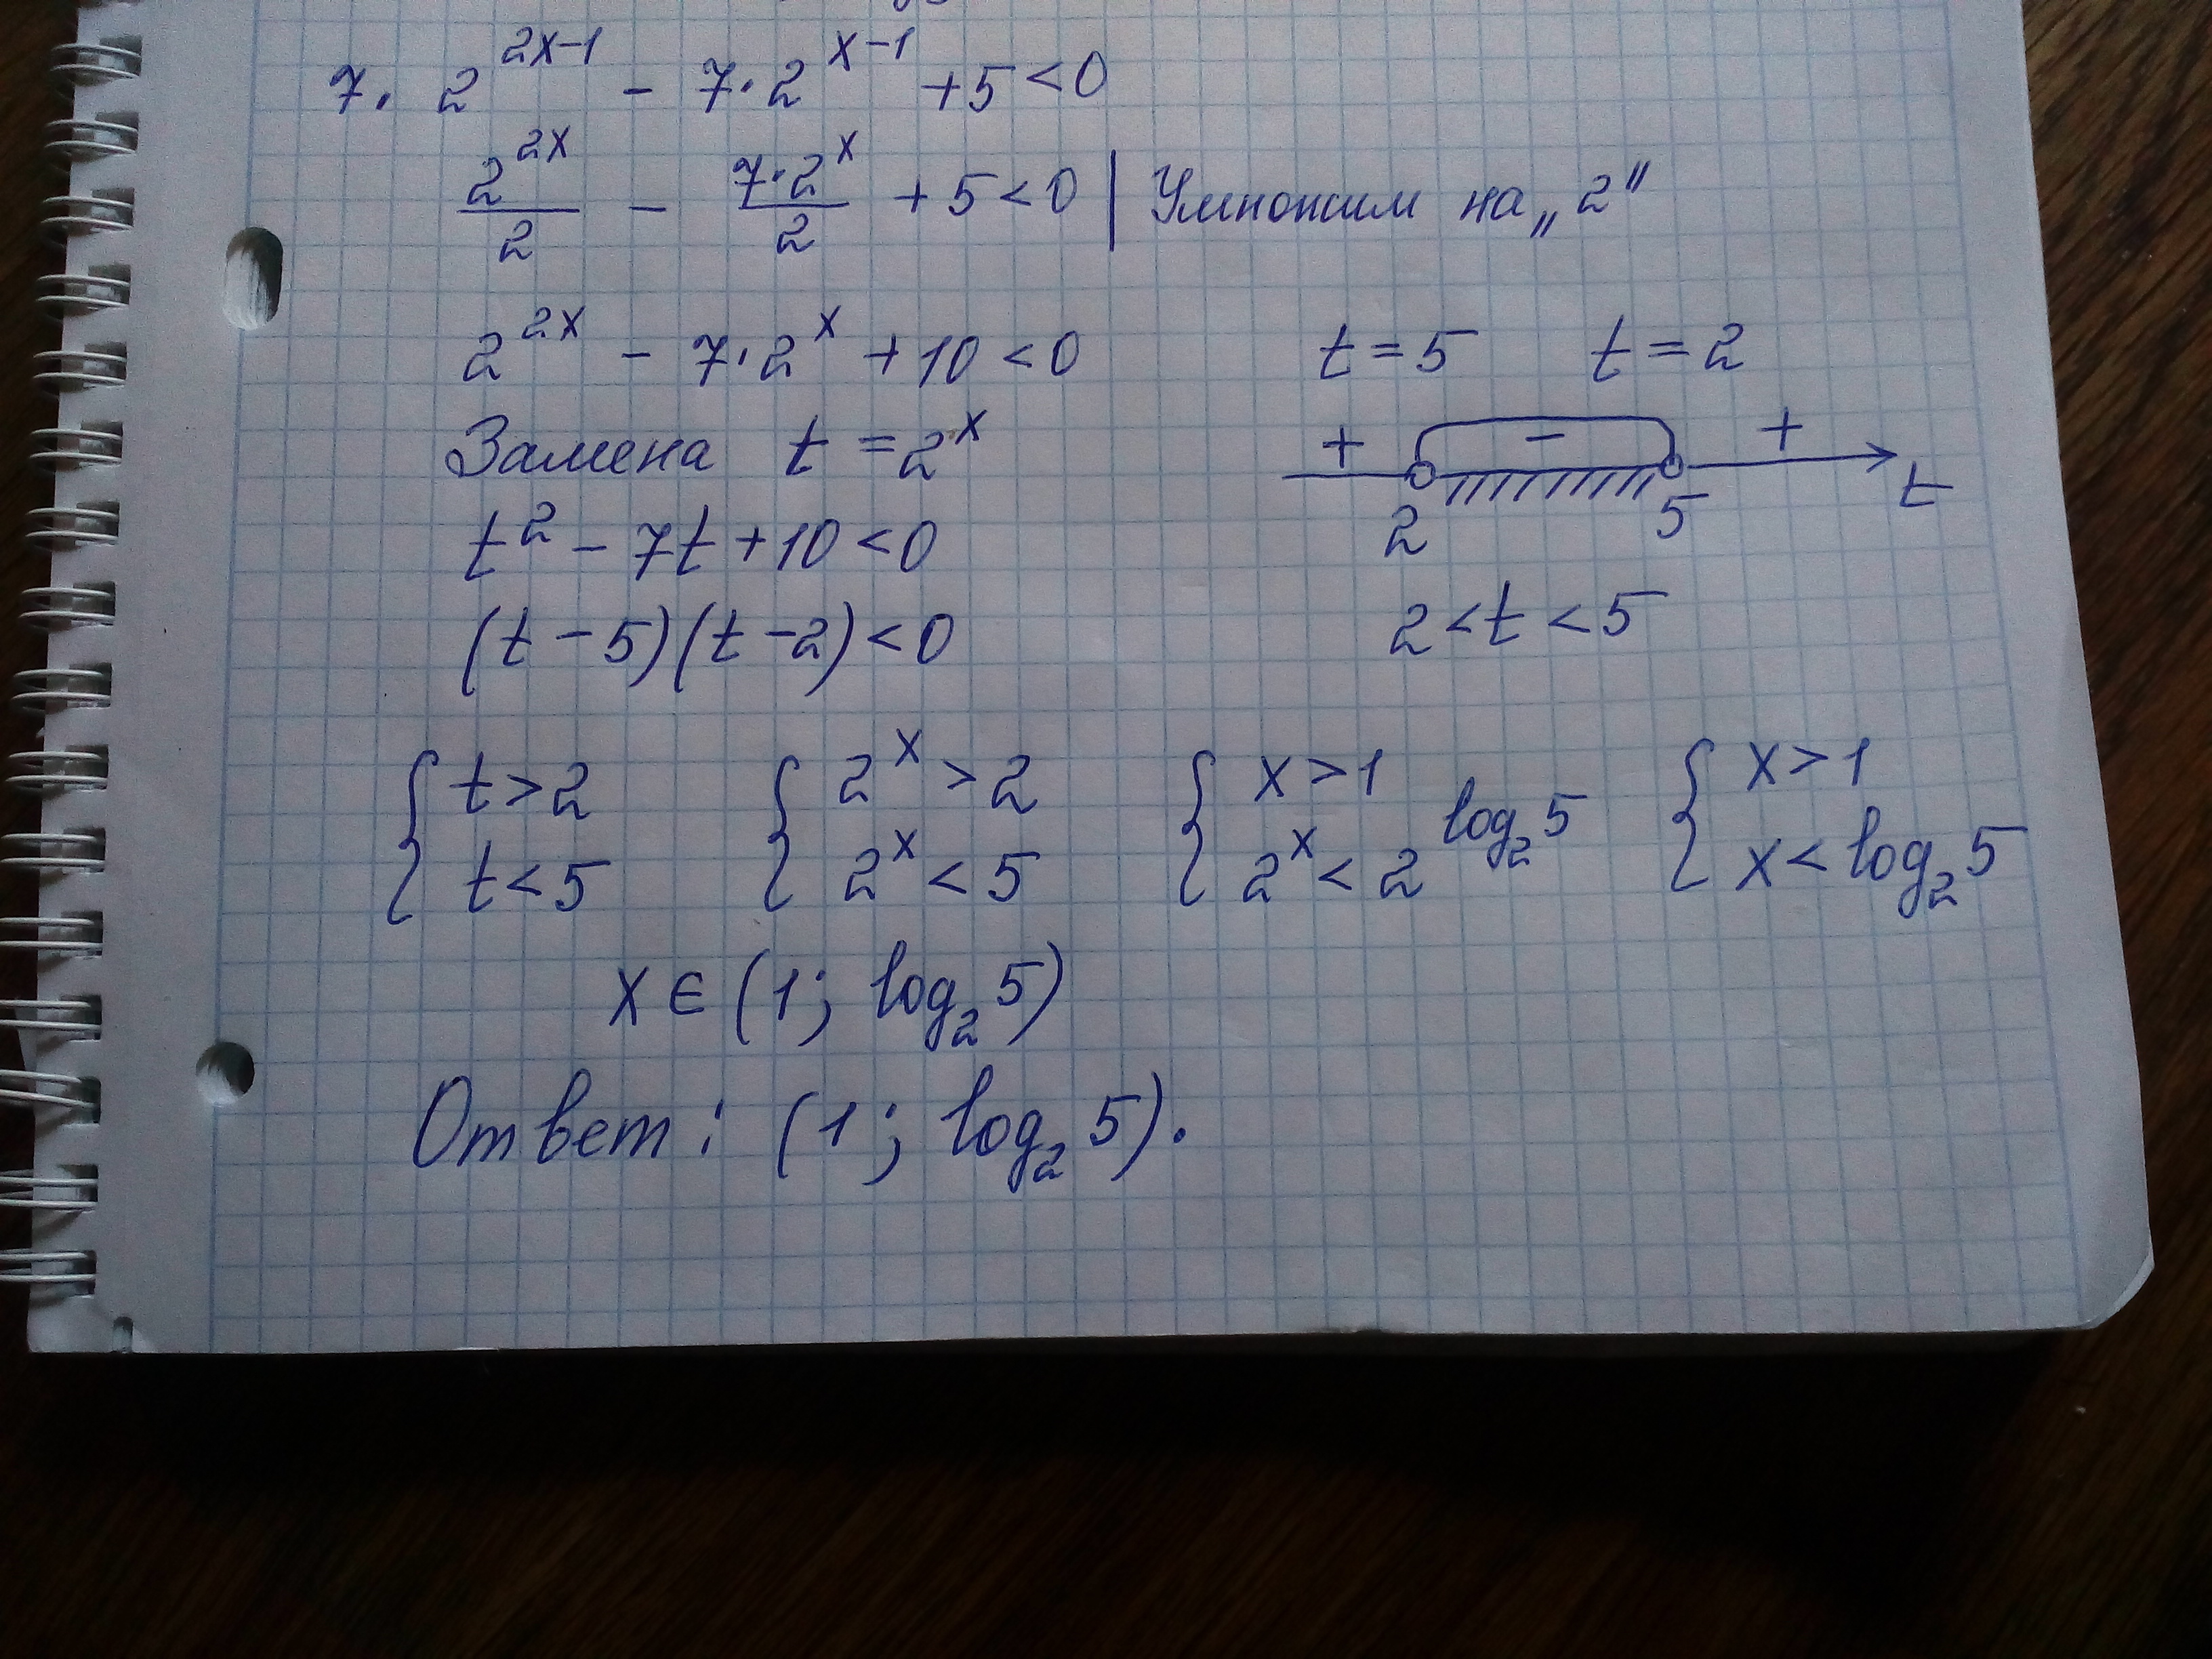 7. 2^(2x-1) - 7·2^(x-1) + 5 < 0
2^(2x)/2 - 7·2^x/2 + 5 < 0 | Умножим на „2"
2^(2x) - 7·2^x + 10 < 0
Замена t = 2^x
t² - 7t + 10 < 0
(t - 5)(t - 2) < 0
t = 5 t = 2
+ - +
2 5 t
2 < t < 5
{ t > 2 { 2^x > 2 { x > 1 { x > 1
t < 5 2^x < 5 2^x < 2^(log₂5) x < log₂5
x ∈ (1; log₂5)
Ответ: (1; log₂5).